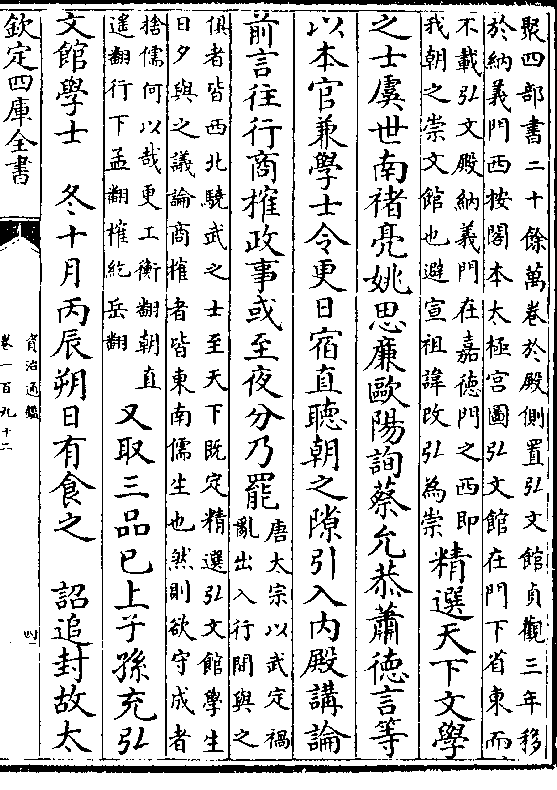 聚四部書二十餘萬卷於殿側置弘文館貞觀三年移
於納義門西按閣本太極宫圖弘文館在門下省東而
不載弘文殿納義門在嘉德門之西即
我朝之崇文館也避宣祖諱改弘為崇
精選天下文學
之士虞世南褚亮姚思廉歐陽詢蔡允恭蕭德言等
以本官兼學士令更日宿直聽朝之隙引入内殿講論
前言往行商榷政事或至夜分乃罷
唐太宗以武定禍
亂出入行間與之
俱者皆西北驍武之士至天下既定精選弘文館學生
日夕與之議論商榷者皆東南儒生也然則欲守成者
捨儒何以哉更工衡翻朝直
遥翻行下孟翻榷紇岳翻
又取三品已上子孫充弘
文館學士　冬十月丙辰朔日有食之　詔追封故太
欽定四庫全書
資治通鑑
卷一百九十二
四